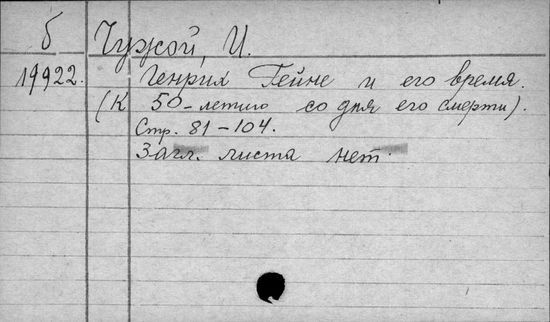 б Чужой, И.
19922. Генрих Гейне и его время.
(К 50-летию со дня его смерти).
Стр. 81-104.
Загл. листа нет.